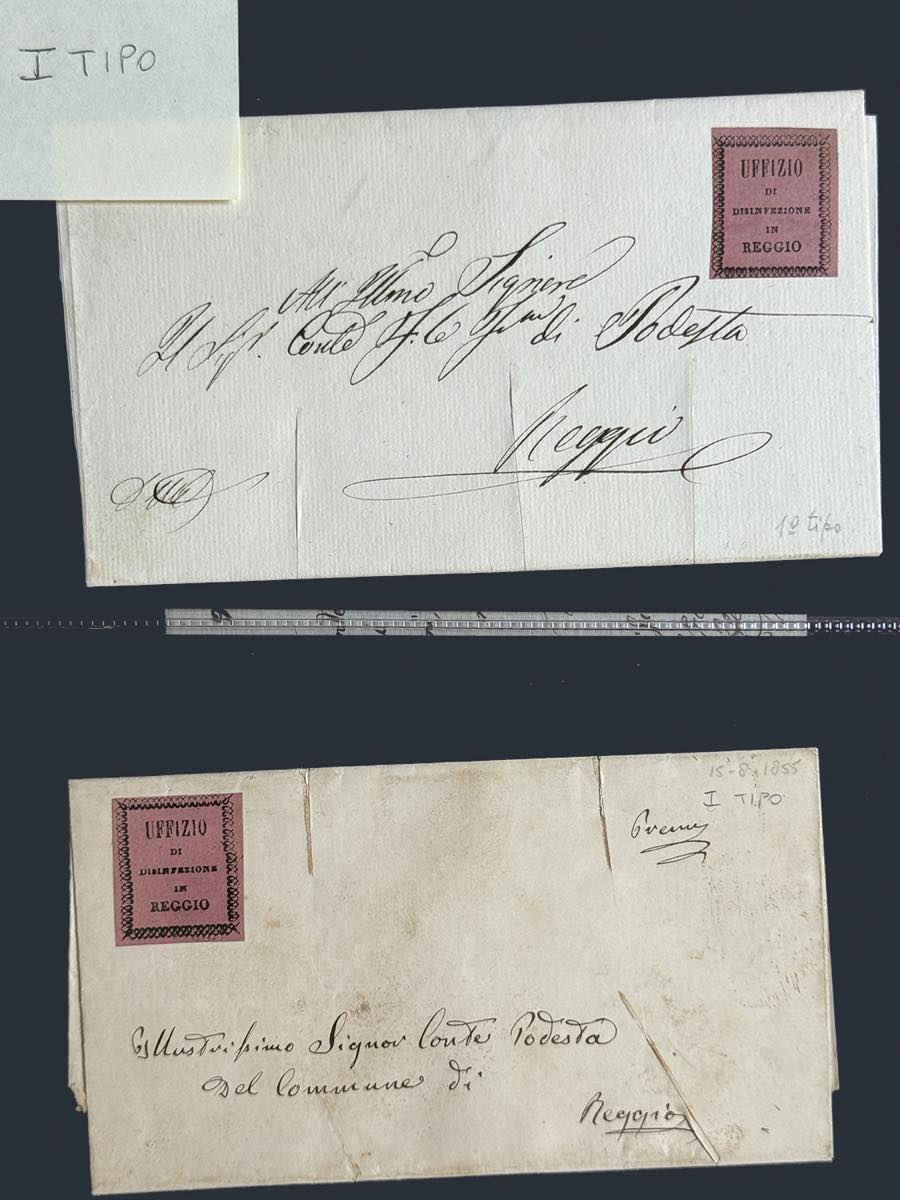 I TIPO
UFFIZIO
DI
DISINFEZIONE
IN
REGGIO
All' Illmo Signore
Il Sigr. Conte di Podestà
Reggio
1º tipo
15-8-1855
I TIPO
UFFIZIO
DI
DISINFEZIONE
IN
REGGIO
Illustrissimo Signor Conte Podestà
Del Commune di
Reggio